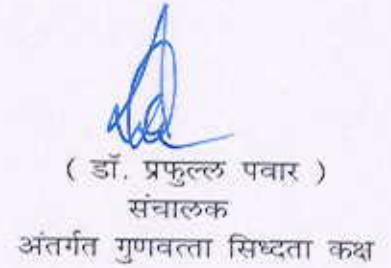 ( डॉ. प्रफुल्ल पवार )
संचालक
अंतर्गत गुणवत्ता सिध्दता कक्ष